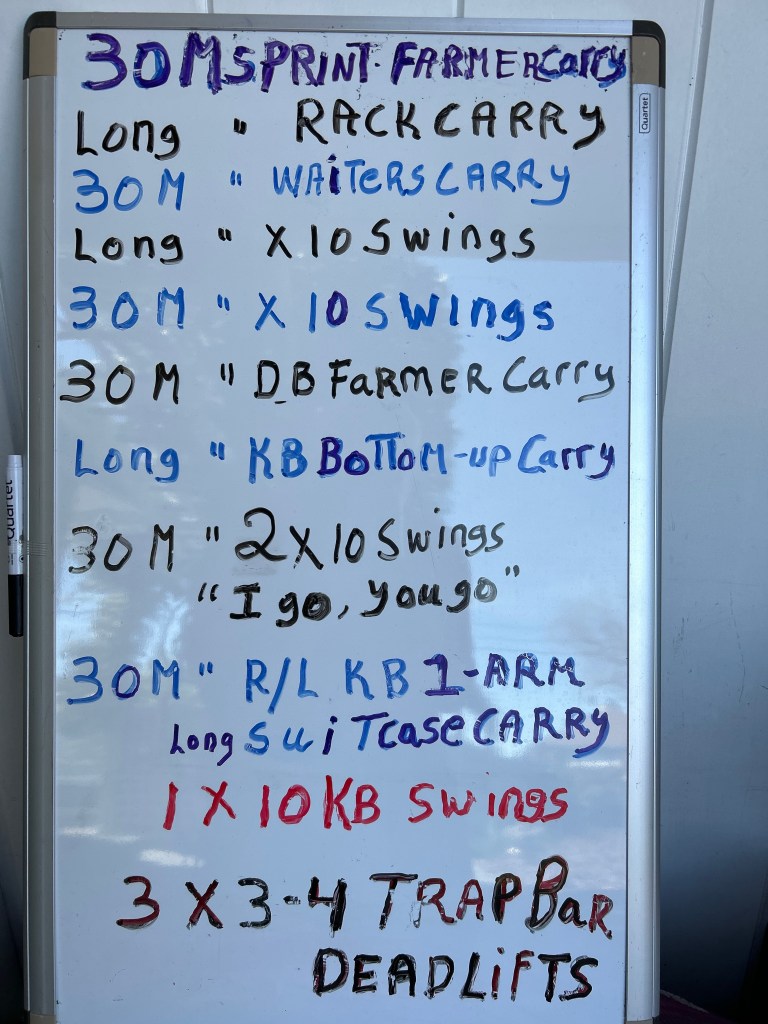 30M SPRINT · FARMER Carry
Long " RACK CARRY
30M " WAiTeRS CARRY
Long " X 10 Swings
30M " X 10 SWings
30M " DB FaRMER Carry
Long " KB BoTToM-up Carry
30M " 2 X 10 Swings
"I go, you go"
30M " R/L KB 1-ARM
Long SuiTcase CARRY
1 X 10 KB Swings
3 X 3-4 TRAP BaR
DEADLiFTS
Quartet
Quartet